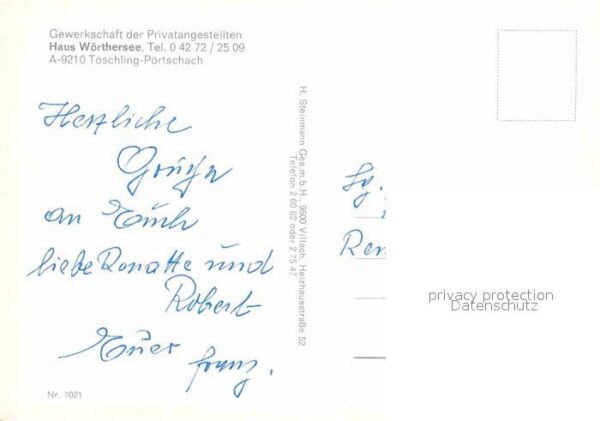 Gewerkschaft der Privatangestellten
Haus Wörthersee, Tel. 0 42 72 / 25 09
A-9210 Töschling-Pörtschach
Herzliche
Grüße
an Euch
liebe Ronatte und
Robert
Euer Franz.
Nr. 7021
H. Steinmann Ges.m.b.H., 9500 Villach, Heizhausstraße 52
Telefon 2 60 62 oder 2 75 47
Ren
privacy protection
Datenschutz